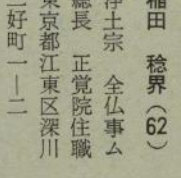 稲田 稔界（62）
浄土宗 全仏事ム
總長 正覚院住職
東京都江東区深川
三好町一―二